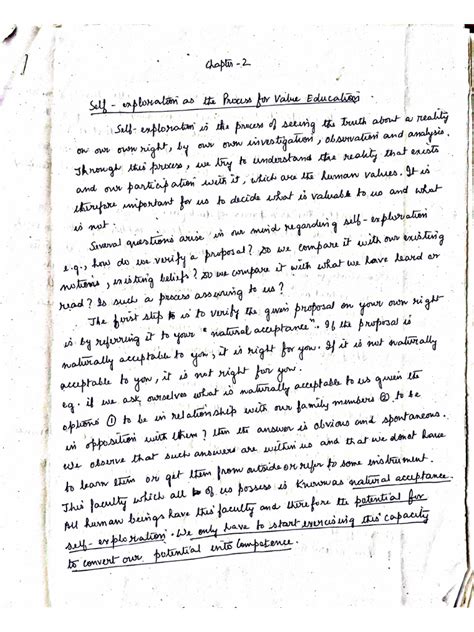 Chapter - 2
Self - exploration as the Process for Value Education
Self-exploration is the process of seeing the truth about a reality
on our own right, by our own investigation, observation and analysis.
Through this process, we try to understand the reality that exists
and our participation with it, which are the human values. It is
therefore important for us to decide what is valuable to us and what
is not.
Several questions arise in our mind regarding self-exploration
e.g., how do we verify a proposal? Do we compare it with our existing
notions, existing beliefs? Do we compare it with what we have heard or
read? Is such a process assuring to us?
The first step is to verify the given proposal on your own right
is by referring it to your "natural acceptance". If the proposal is
naturally acceptable to you, it is right for you. If it is not naturally
acceptable to you, it is not right for you.
eg. if we ask ourselves what is naturally acceptable to us given the
options ① to be in relationship with our family members ② to be
in opposition with them? then the answer is obvious and spontaneous.
We observe that such answers are within us and that we donot have
to learn them or get them from outside or refer to some instrument.
This faculty which all of us possess is known as natural acceptance.
All human beings have this faculty and therefore the potential for
self-exploration. We only have to start exercising this capacity
to convert our potential into competence.